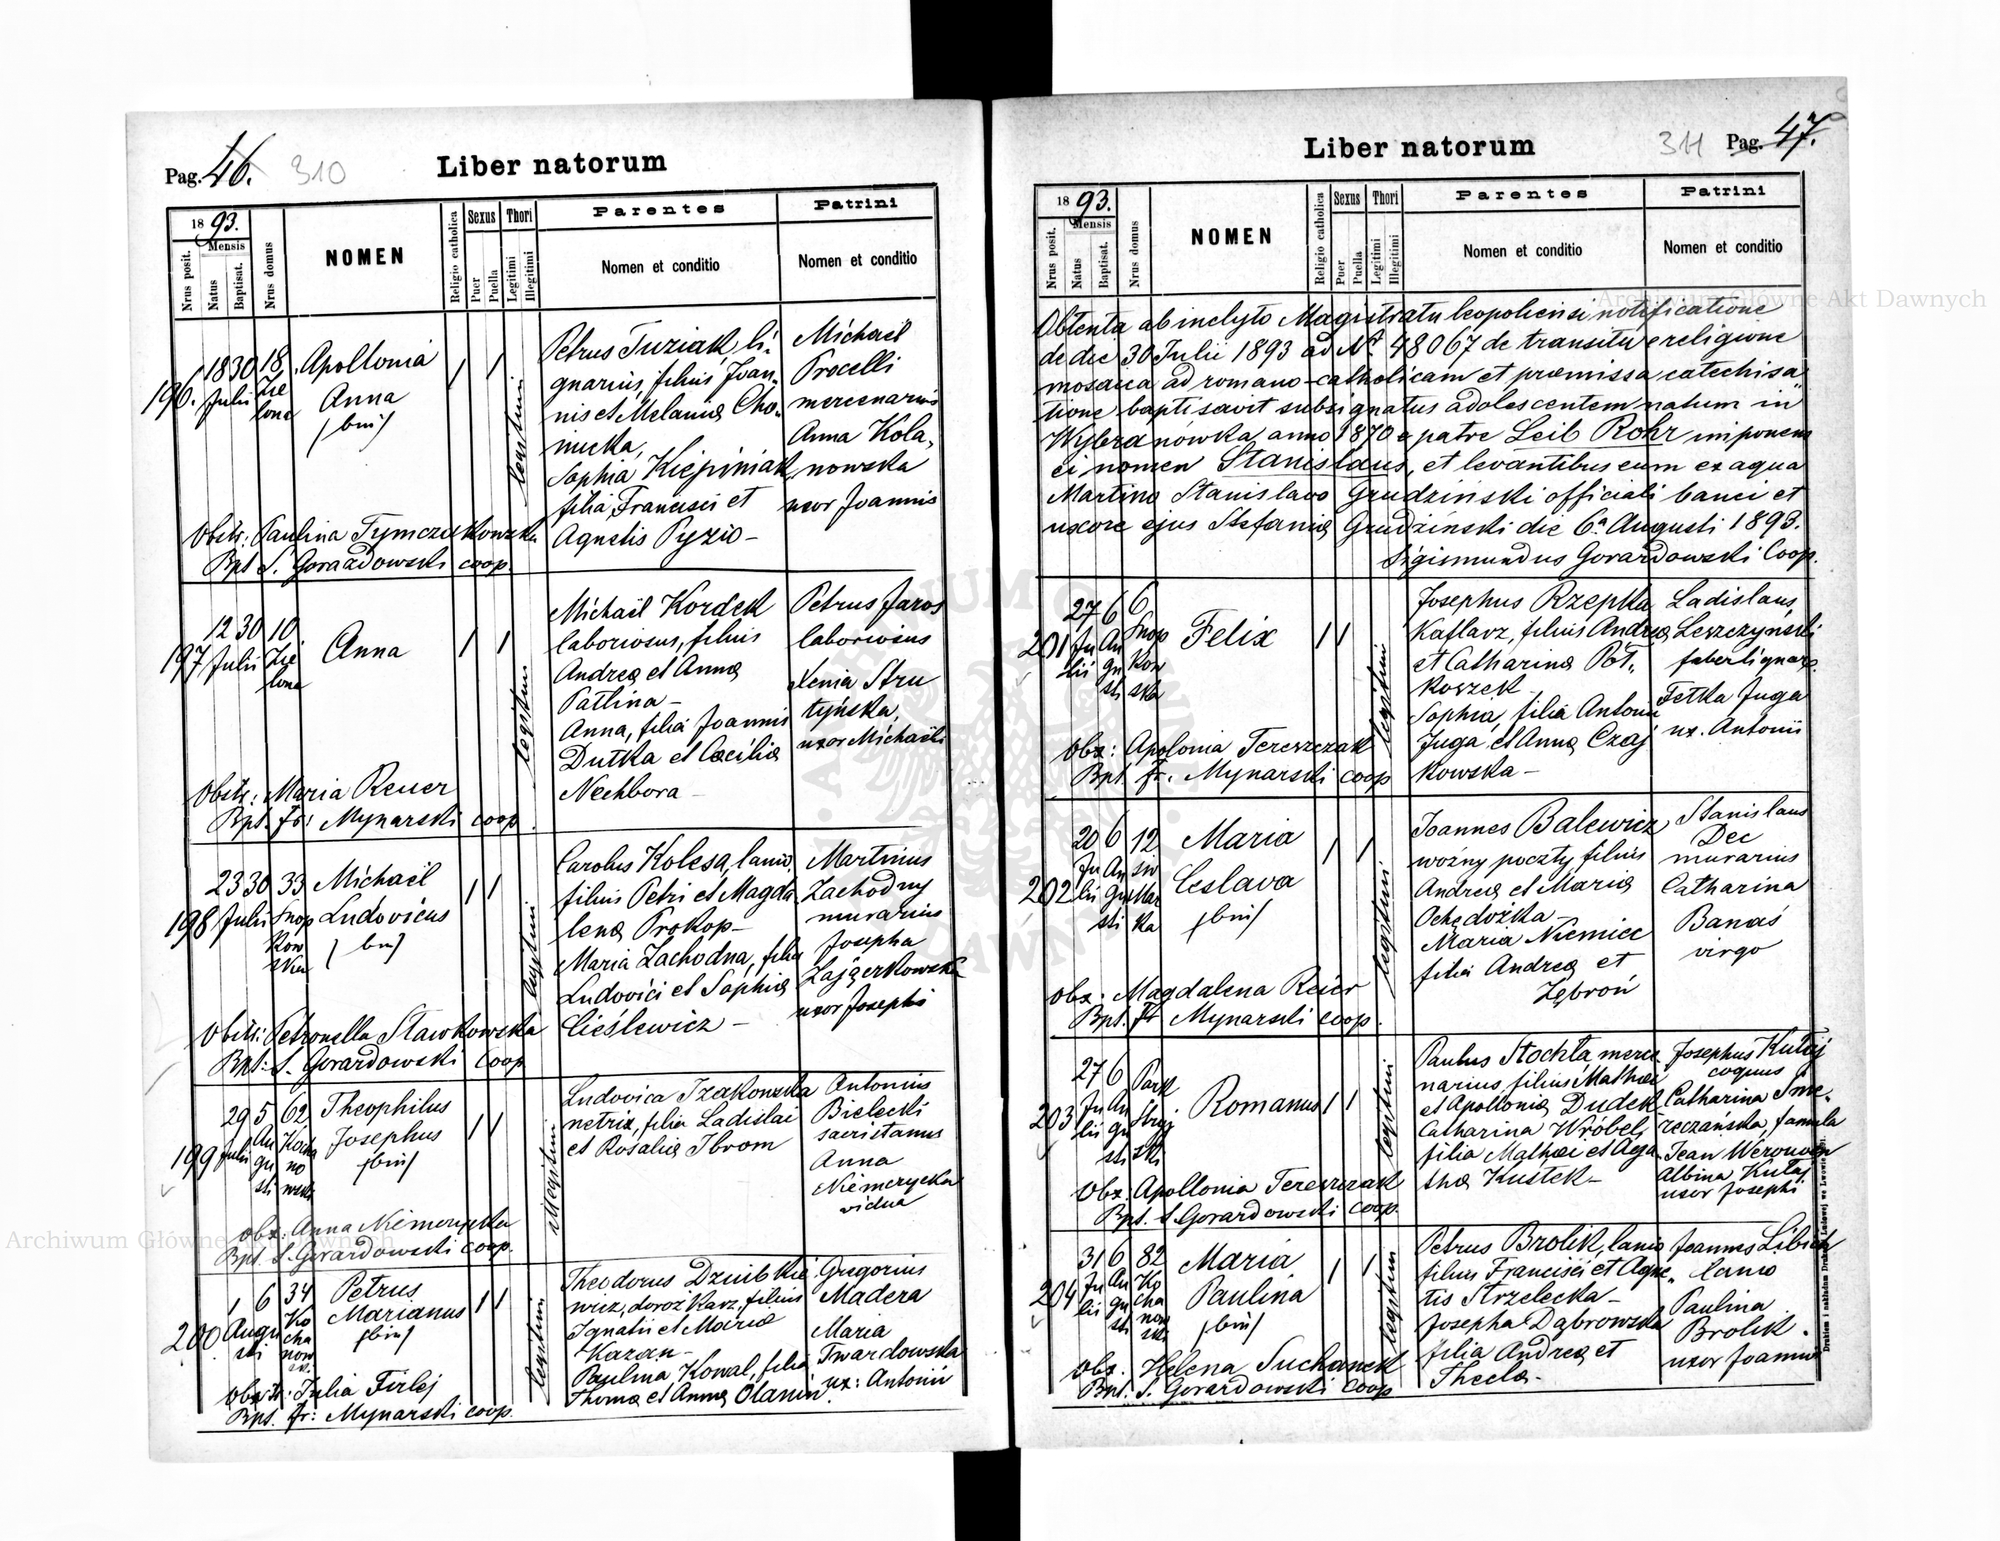 Pag. 46. 310
Liber natorum
1893.
Mensis
Nrus posit.
Natus
Baptisat.
Nrus domus
NOMEN
Religio catholica
Sexus
Puer
Puella
Thori
Legitimi
Illegitimi
Parentes
Nomen et conditio
Patrini
Nomen et conditio
196.
18 30 18
Julii Zie
lona
Apollonia
Anna
(bin)
legitimi
Petrus Tuziak, li-
gnarius, filius Joan-
nis et Melania Cho-
micka,
Sophia Kiepiniak,
filia Francisci et
Agnetis Pyzio -
Michaël
Procelli
mercenarius
Anna Kola-
nowska
uxor Joannis
Obstr: Paulina Tymczakowska
Bpt S. Gorazdowski coop.
197
12 30 10
Julii Zie
lona
Anna
legitimi
Michaël Kordek
laboriosus, filius
Andreæ et Annæ
Patlina -
Anna, filia Joannis
Dutka et Cæciliæ
Nechbora -
Petrus Jaros
laboriosus
Xenia Stru
tyńska,
uxor Michaëli
Obstr: Maria Reuer
Bpt. fr: Mynarski coop.
198
23 30 33
Julii Snop
kow
ska
Michaël
Ludovicus
(bin)
legitimi
Carolus Kolesa, lanio,
filius Petri et Magda
lenæ Prokop -
Maria Zachodna, filia
Ludovici et Sophiæ
Cieślewicz -
Martinus
Zachodny
murarius
Josepha
Zajączkowska
uxor Josephi
Obstr: Petronella Stawkowska
Bpt: S. Gorazdowski coop
199
29 5 62
Julii Au
gu
sti
Kocha
no
wski
Theophilus
Josephus
(bin)
illegitimi
Ludovica Izakowska
netrix, filia Ladislai
et Rosaliæ Ibrom
Antonius
Bielecki
sacristanus
Anna
Niemerycka
vidua
Obz: Anna Niemerycka
Bpt. S. Gorazdowski coop.
200
1 6 34
Augu
sti
Ko
cha
now
sk.
Petrus
Marianus
(bin)
legitimi
Theodorus Dziubkie
wicz, dorożkarz, filius
Ignatii et Mariæ
Kazan -
Paulina Kowal, filia
Thomæ et Annæ Olanin.
Gregorius
Madera
Maria
Twardowska
ux: Antonii
Obstr: Julia Firlej
Bpt. fr: Mynarski coop.
Liber natorum
311 Pag. 47.
1893.
Mensis
Nrus posit.
Natus
Baptisat.
Nrus domus
NOMEN
Religio catholica
Sexus
Puer
Puella
Thori
Legitimi
Illegitimi
Parentes
Nomen et conditio
Patrini
Nomen et conditio
Obtenta ab inclyto Magistratu leopoliensi notificatione
de die 30 Julii 1893 ad Nr 48067 de transitu e religione
mosaica ad romano-catholicam et præmissa catechisa
tione baptisavit subsignatus adolescentem natum in
Wybranówka anno 1870 e patre Leib Rohr imponens
ei nomen Stanislaus, et levantibus eum ex aqua
Martino Stanislavo Grudziński officiali banci et
uxore ejus Stefania Grudziński die 6a Augusti 1893.
Sigismundus Gorazdowski Coop.
201
27 6 6
Ju
lii
Au
gu
sti
Snop
kow
ska
Felix
legitimi
Josephus Rzepka
Kaflarz, filius Andreæ
et Catharinæ Pot-
koszek
Sophia, filia Antonii
Juga et Annæ Czaj
kowska -
Ladislaus
Leszczyński
faber lignar.
Tetka Juga
ux. Antonii
Obz: Apolonia Tereszczak
Bpt. fr. Mynarski coop
202
20 6 12
Ju
lii
Au
gu
sti
sw
Mar
ka
Maria
Ceslava
(bin)
legitimi
Joannes Balewicz
woźny poczty filius
Andreæ et Mariæ
Ochędożka -
Maria Niemiec
filia Andreæ et
Zębroń
Stanislaus
Dec
murarius
Catharina
Banaś
virgo
Obz. Magdalena Reier
Bpt. fr Mynarski coop.
203
27 6
Ju
lii
Au
gu
sti
Park
Stryj
ski
Romanus
legitimi
Paulus Stochła merce
narius, filius Mathæi
et Apolloniæ Dudek -
Catharina Wróbel,
filia Mathæi et Aga
thæ Kustek -
Josephus Kutaj
coquus
Catharina Sme-
reczańska, famula
Jean Werouven
Albina Kutaj
uxor Josephi
Obz: Apollonia Tereszczak
Bpt. S. Gorazdowski coop.
204
31 6 82
Ju
lii
Au
gu
sti
Ko
cha
now
ski
Maria
Paulina
(bin)
legitimi
Petrus Brolik, lanio
filius Francisci et Agne-
tis Strzelecka -
Josepha Dąbrowska
filia Andreæ et
Theclæ -
Joannes Libich
lanio
Paulina
Brolik.
uxor Joannis
Obz: Helena Suchanek
Bpt. S. Gorazdowski coop
Archiwum Główne Akt Dawnych
Archiwum Główne Akt Dawnych